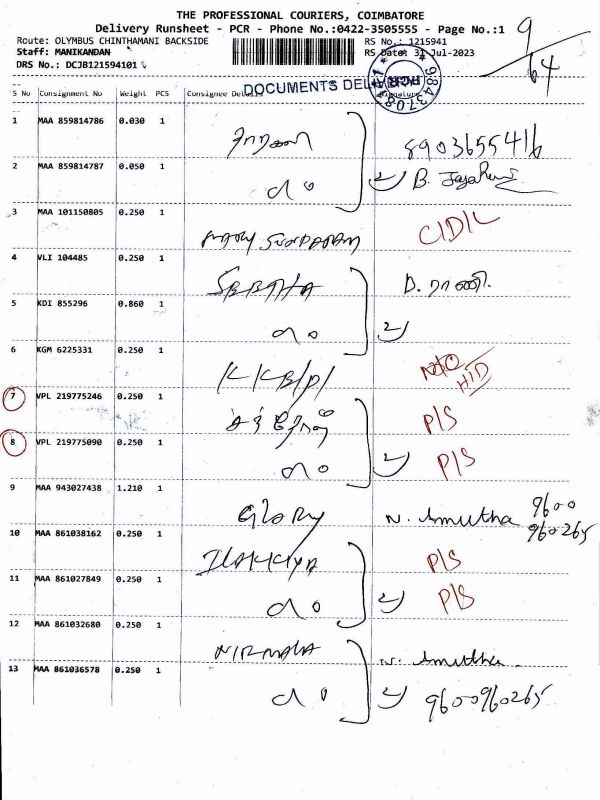 THE PROFESSIONAL COURIERS, COIMBATORE
Delivery Runsheet - PCR - Phone No.:0422-3505555 - Page No.:1
9/64
Route: OLYMBUS CHINTHAMANI BACKSIDE
RS No.: 1215941
Staff: MANIKANDAN
RS Date: 31-Jul-2023
DRS No.: DCJB121594101
DOCUMENTS DEL
S No Consignment No Weight PCS Consignee Details Signature
1 MAA 859814786 0.030 1 8903655416
2 MAA 859814787 0.050 1 do 2) B.
3 MAA 101150805 0.250 1 MARY SUNDARAM C/D/L
4 VLI 104485 0.250 1 D. ராணி.
5 KDI 855296 0.860 1 do 2)
6 KGM 6225331 0.250 1
7 VPL 219775246 0.250 1 P/S
8 VPL 219775090 0.250 1 do 2) P/S
9 MAA 943027438 1.210 1 GLORY N. Amutha 9600960265
10 MAA 861038162 0.250 1 ILAKKIYA P/S
11 MAA 861027849 0.250 1 do 2) P/S
12 MAA 861032680 0.250 1 NIRMALA N. Amutha
13 MAA 861036578 0.250 1 do 2) 9600960265